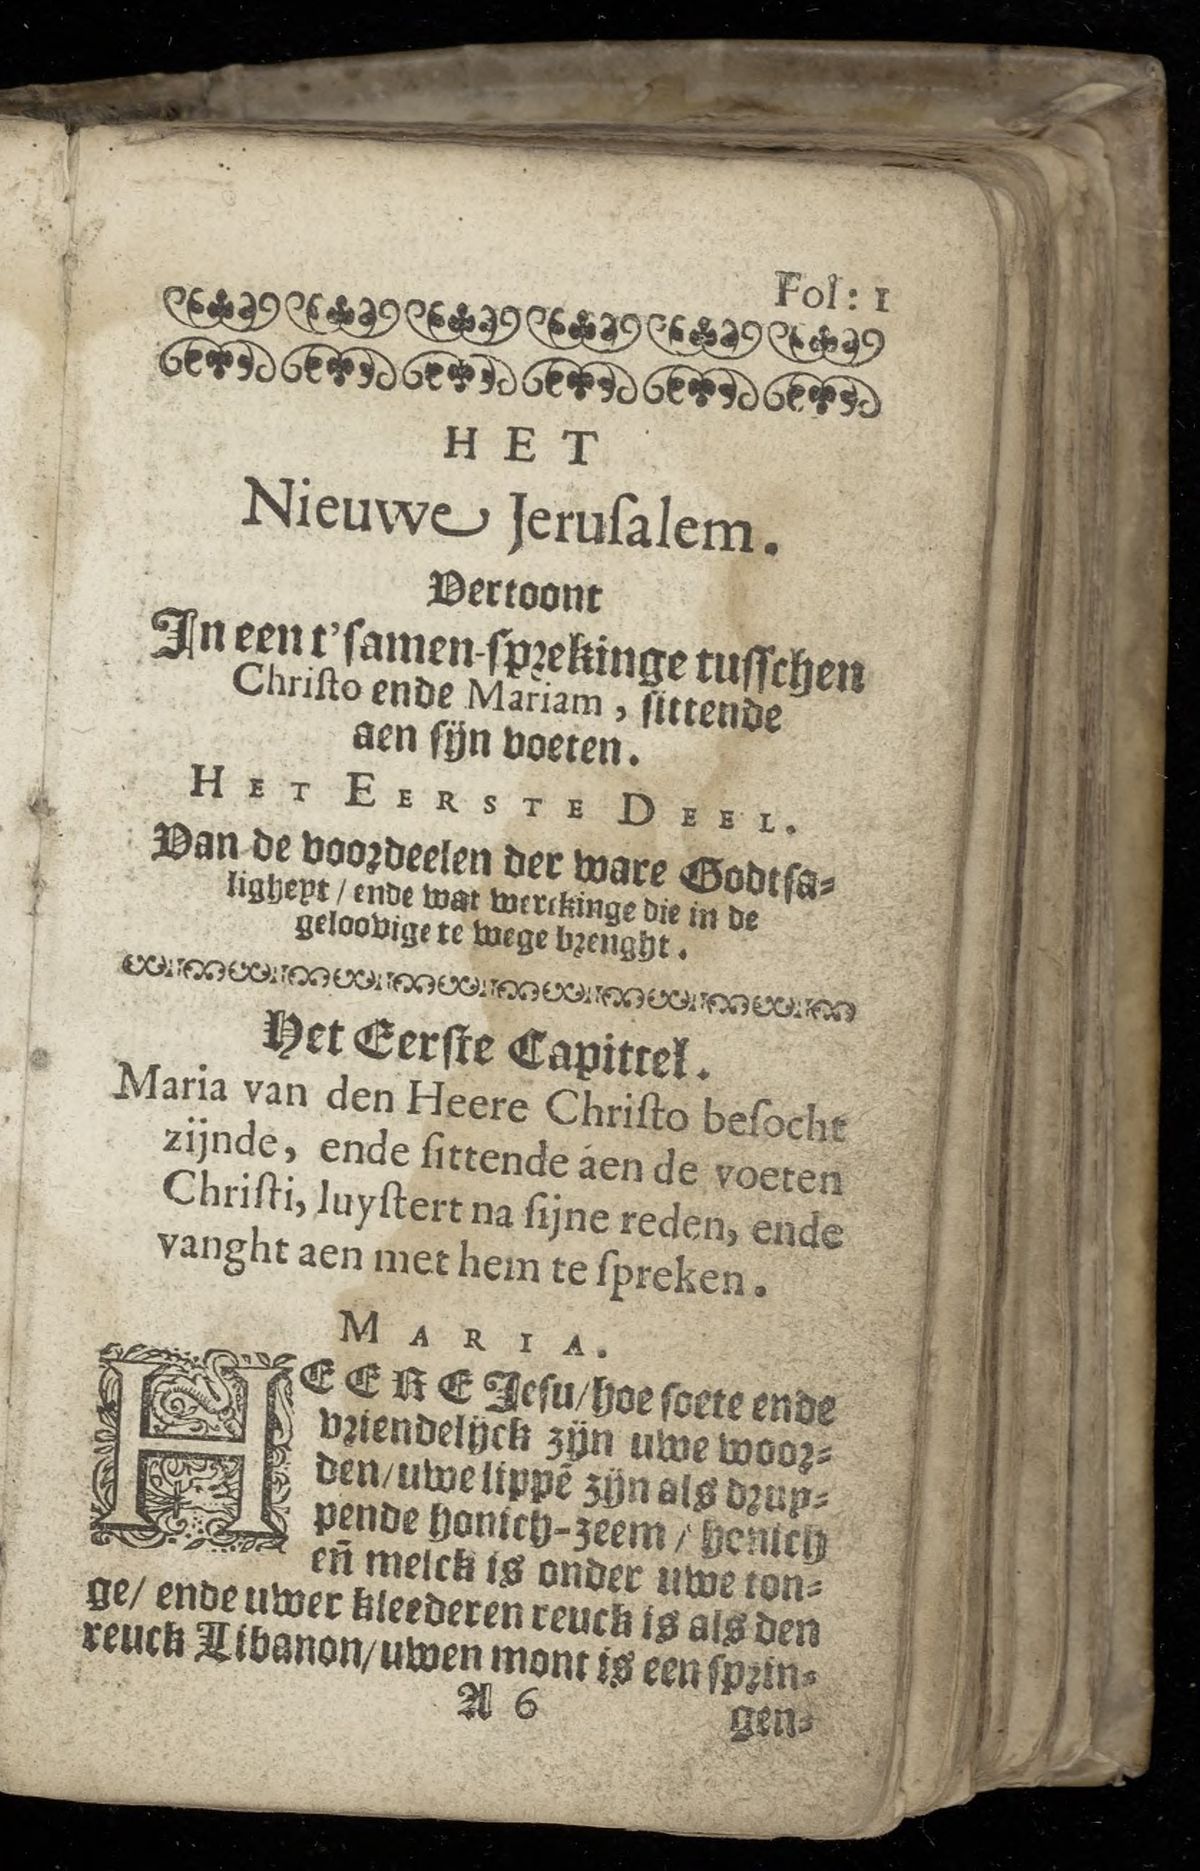 Fol: 1
HET
Nieuwe Jeruſalem.
Vertoont
In een t'ſamen-ſprekinge tuſſchen
Chriſto ende Mariam, ſittende
aen ſijn voeten.
HET EERSTE DEEL.
Van de voordeelen der ware Godtſa⸗
ligheyt / ende wat werckinge die in de
geloovige te wege brenght.
Het Eerſte Capittel.
Maria van den Heere Chriſto beſocht
zijnde, ende ſittende aen de voeten
Chriſti, luyſtert na ſijne reden, ende
vanght aen met hem te ſpreken.
MARIA.
HEERE Jeſu/ hoe ſoete ende
vriendelijck zijn uwe woor⸗
den/ uwe lippẽ zijn als druy⸗
pende honich-zeem / honich
eñ melck is onder uwe ton⸗
ge/ ende uwer kleederen reuck is als den
reuck Libanon/ uwen mont is een ſprin⸗
A 6
gen⸗